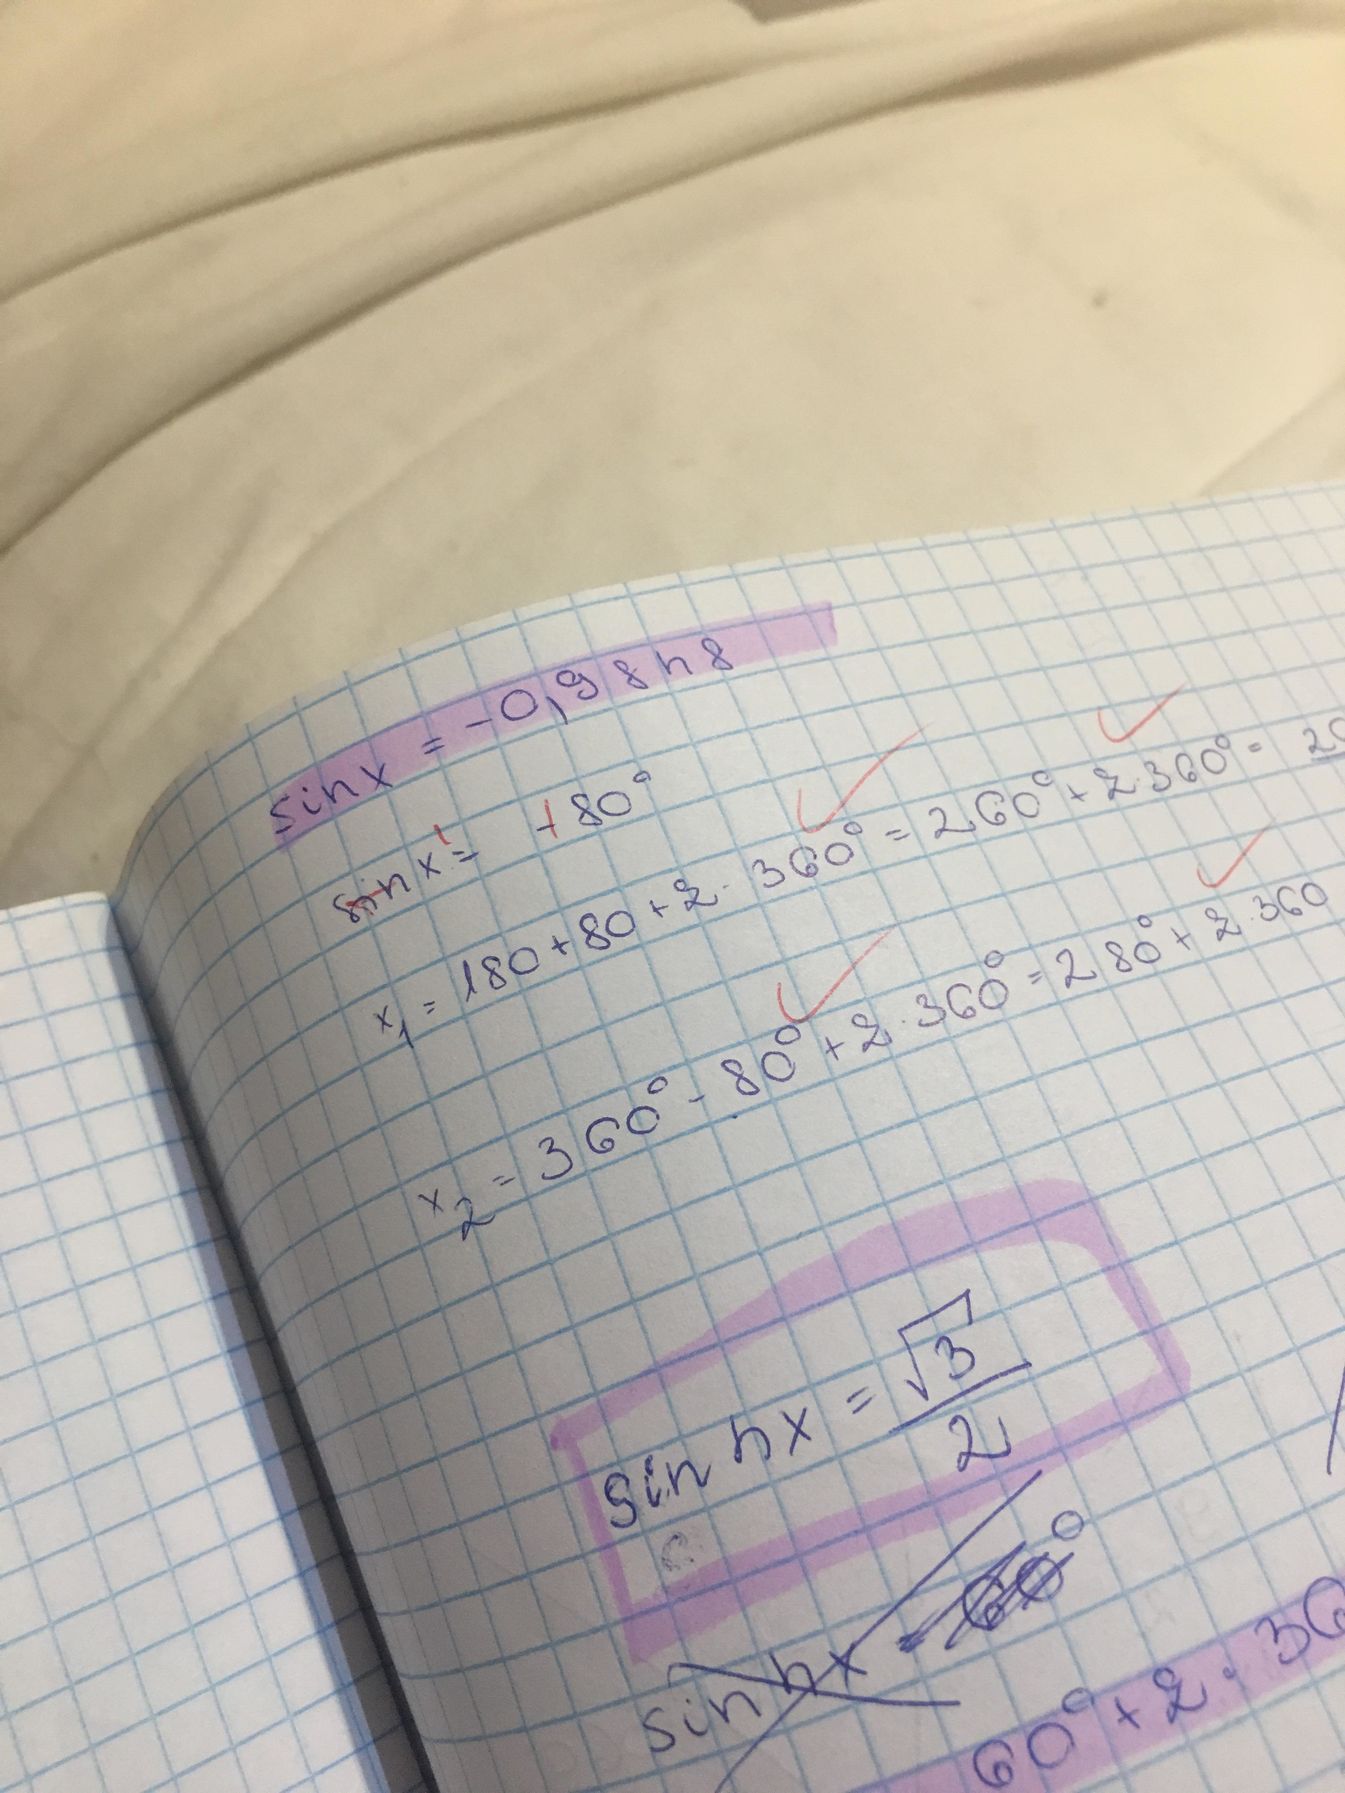 sin x = -0,9848
sin x' = +80°
x₁ = 180 + 80 + z · 360° = 260° + z·360° =
x₂ = 360° - 80° + z · 360° = 280° + z·360
sin 4x = √3/2
sin 4x 60°
60° + z · 36